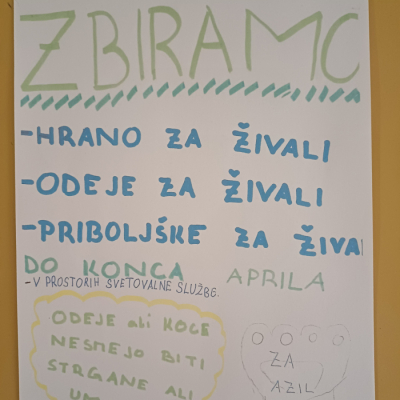 ZBIRAMO
-HRANO ZA ŽIVALI
-ODEJE ZA ŽIVALI
-PRIBOLJŠKE ZA ŽIVA
DO KONCA APRILA
-V PROSTORIH SVETOVALNE SLUŽBE.
ODEJE ali KOCE
NESMEJO BITI
STRGANE ALI
ZA
AZIL